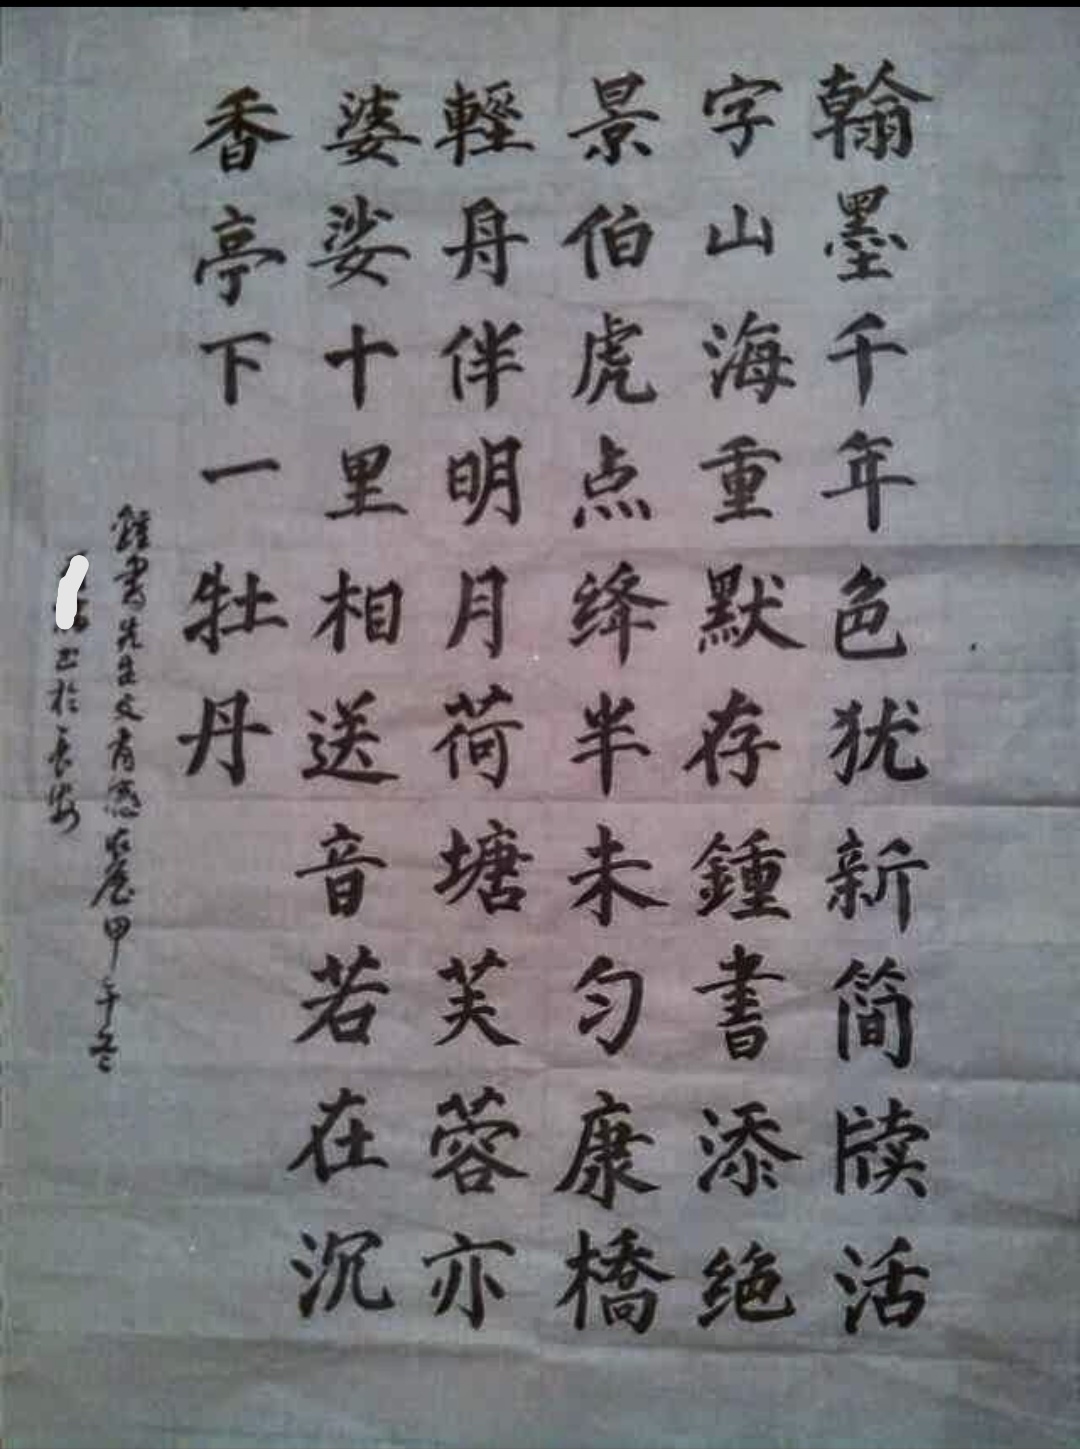 翰墨千年色犹新简牍活
字山海重默存鍾書添绝
景伯虎点绛半未匀康橋
輕舟伴明月荷塘芙蓉亦
婆娑十里相送音若在沉
香亭下一牡丹
鍾書先生文有感 甲午冬
書於長安